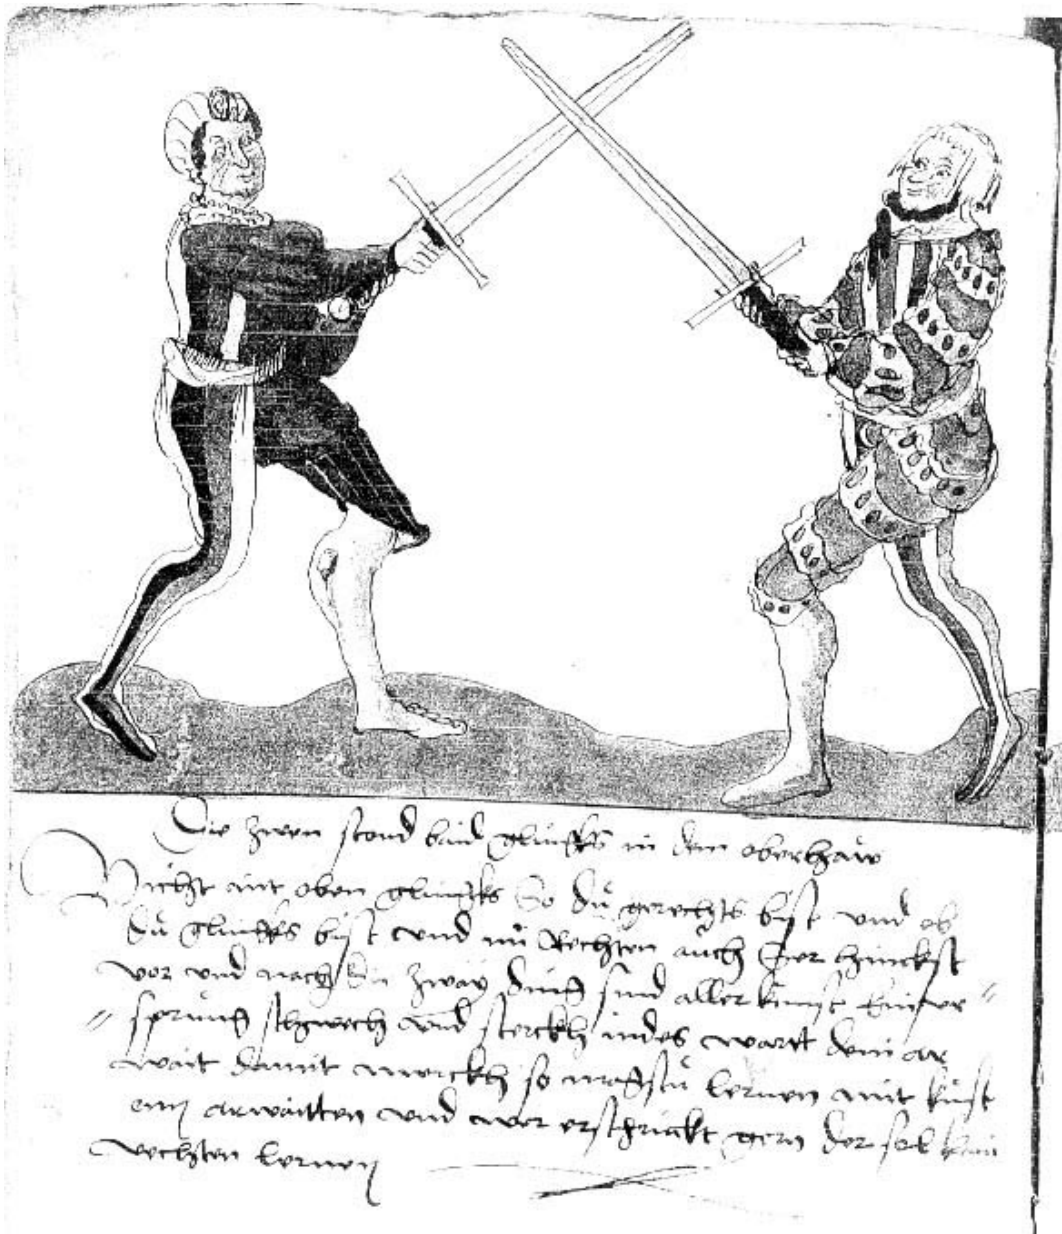 Die zwen stond baid glinckß in dem oberhaw
Vicht nit oben glincks So du gerechts bist vnd ob
du glinckß bist vnd im Rechten auch ser hinckst
vor vnd nach die zway ding sind aller kunst ein vr
sprung schwech vnd sterckh indes wartt
damit merckh so magstu lernen mit kunst
arwaitten vnd wer erschrickt gern der sol kain
vechten lernen